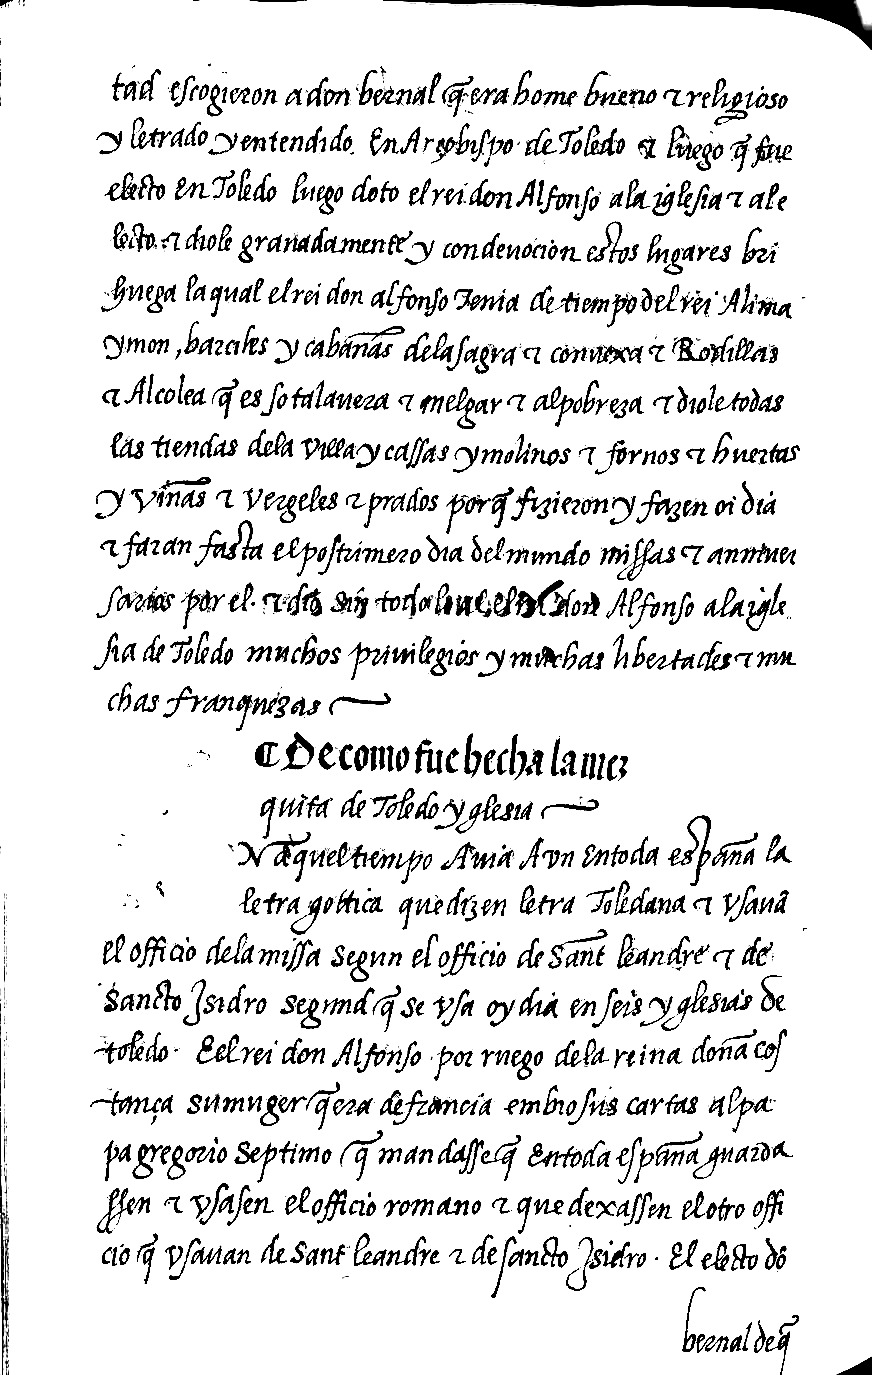 tad escogieron a don bernal q̃ era home bueno ⁊ religioso
y letrado y entendido. En Arçobispo de Toledo ⁊ luego q̃ fue
electo En Toledo luego doto el rei don Alfonso ala iglesia ⁊ al e
lecto. ⁊ diole granadamente y con deuocion estos lugares bri
huega la qual el rei don alfonso Tenia de tiempo del rei Alima
ymon, barciles y cabañas dela sagra ⁊ ⁊ Rodillas
⁊ Alcolea q̃ es so talauera ⁊ melgar ⁊ alpobreza ⁊ diole todas
las tiendas dela villa y cassas y molinos ⁊ fornos ⁊ huertas
y viñas ⁊ vergeles ⁊ prados porq̃ fizieron y fazen oi dia
⁊ faran fasta el postrimero dia del mundo missas ⁊ anniuer
sarios por el. ⁊ dio sin todo don Alfonso ala igle
sia de Toledo muchos priuilegios y muchas libertades ⁊ mu
chas franquezas
¶ De como fue hecha la mez
quita de Toledo yglesia
N aquel tiempo Auia Avn En toda españa la
letra gottica que dizen letra Toledana ⁊ vsauã
el officio dela missa segun el officio de Sant leandre ⁊ de
Sancto Jsidro segund q̃ se vsa oy dia en seis yglesias de
toledo. E el rei don Alfonso por ruego dela reina doña cos
tança su muger q̃ era de francia embio sus cartas al pa
pa gregorio Septimo q̃ mandasse q̃ En toda españa guarda
ssen ⁊ vsasen el officio romano ⁊ que dexassen el otro offi
cio q̃ vsauan de Sant leandre ⁊ de sancto Jsidro. El electo dõ
bernal de q̃